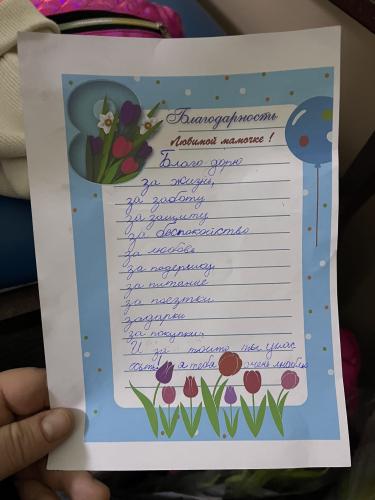 Благодарность
Любимой мамочке !
Благо дорю
за жизнь,
за заботу
за защиту
за беспокойство
за любовь
за подержку
за питание
за поезтки
задарки
за покупки,
И за тошто ты унас
я тебя очень люблю